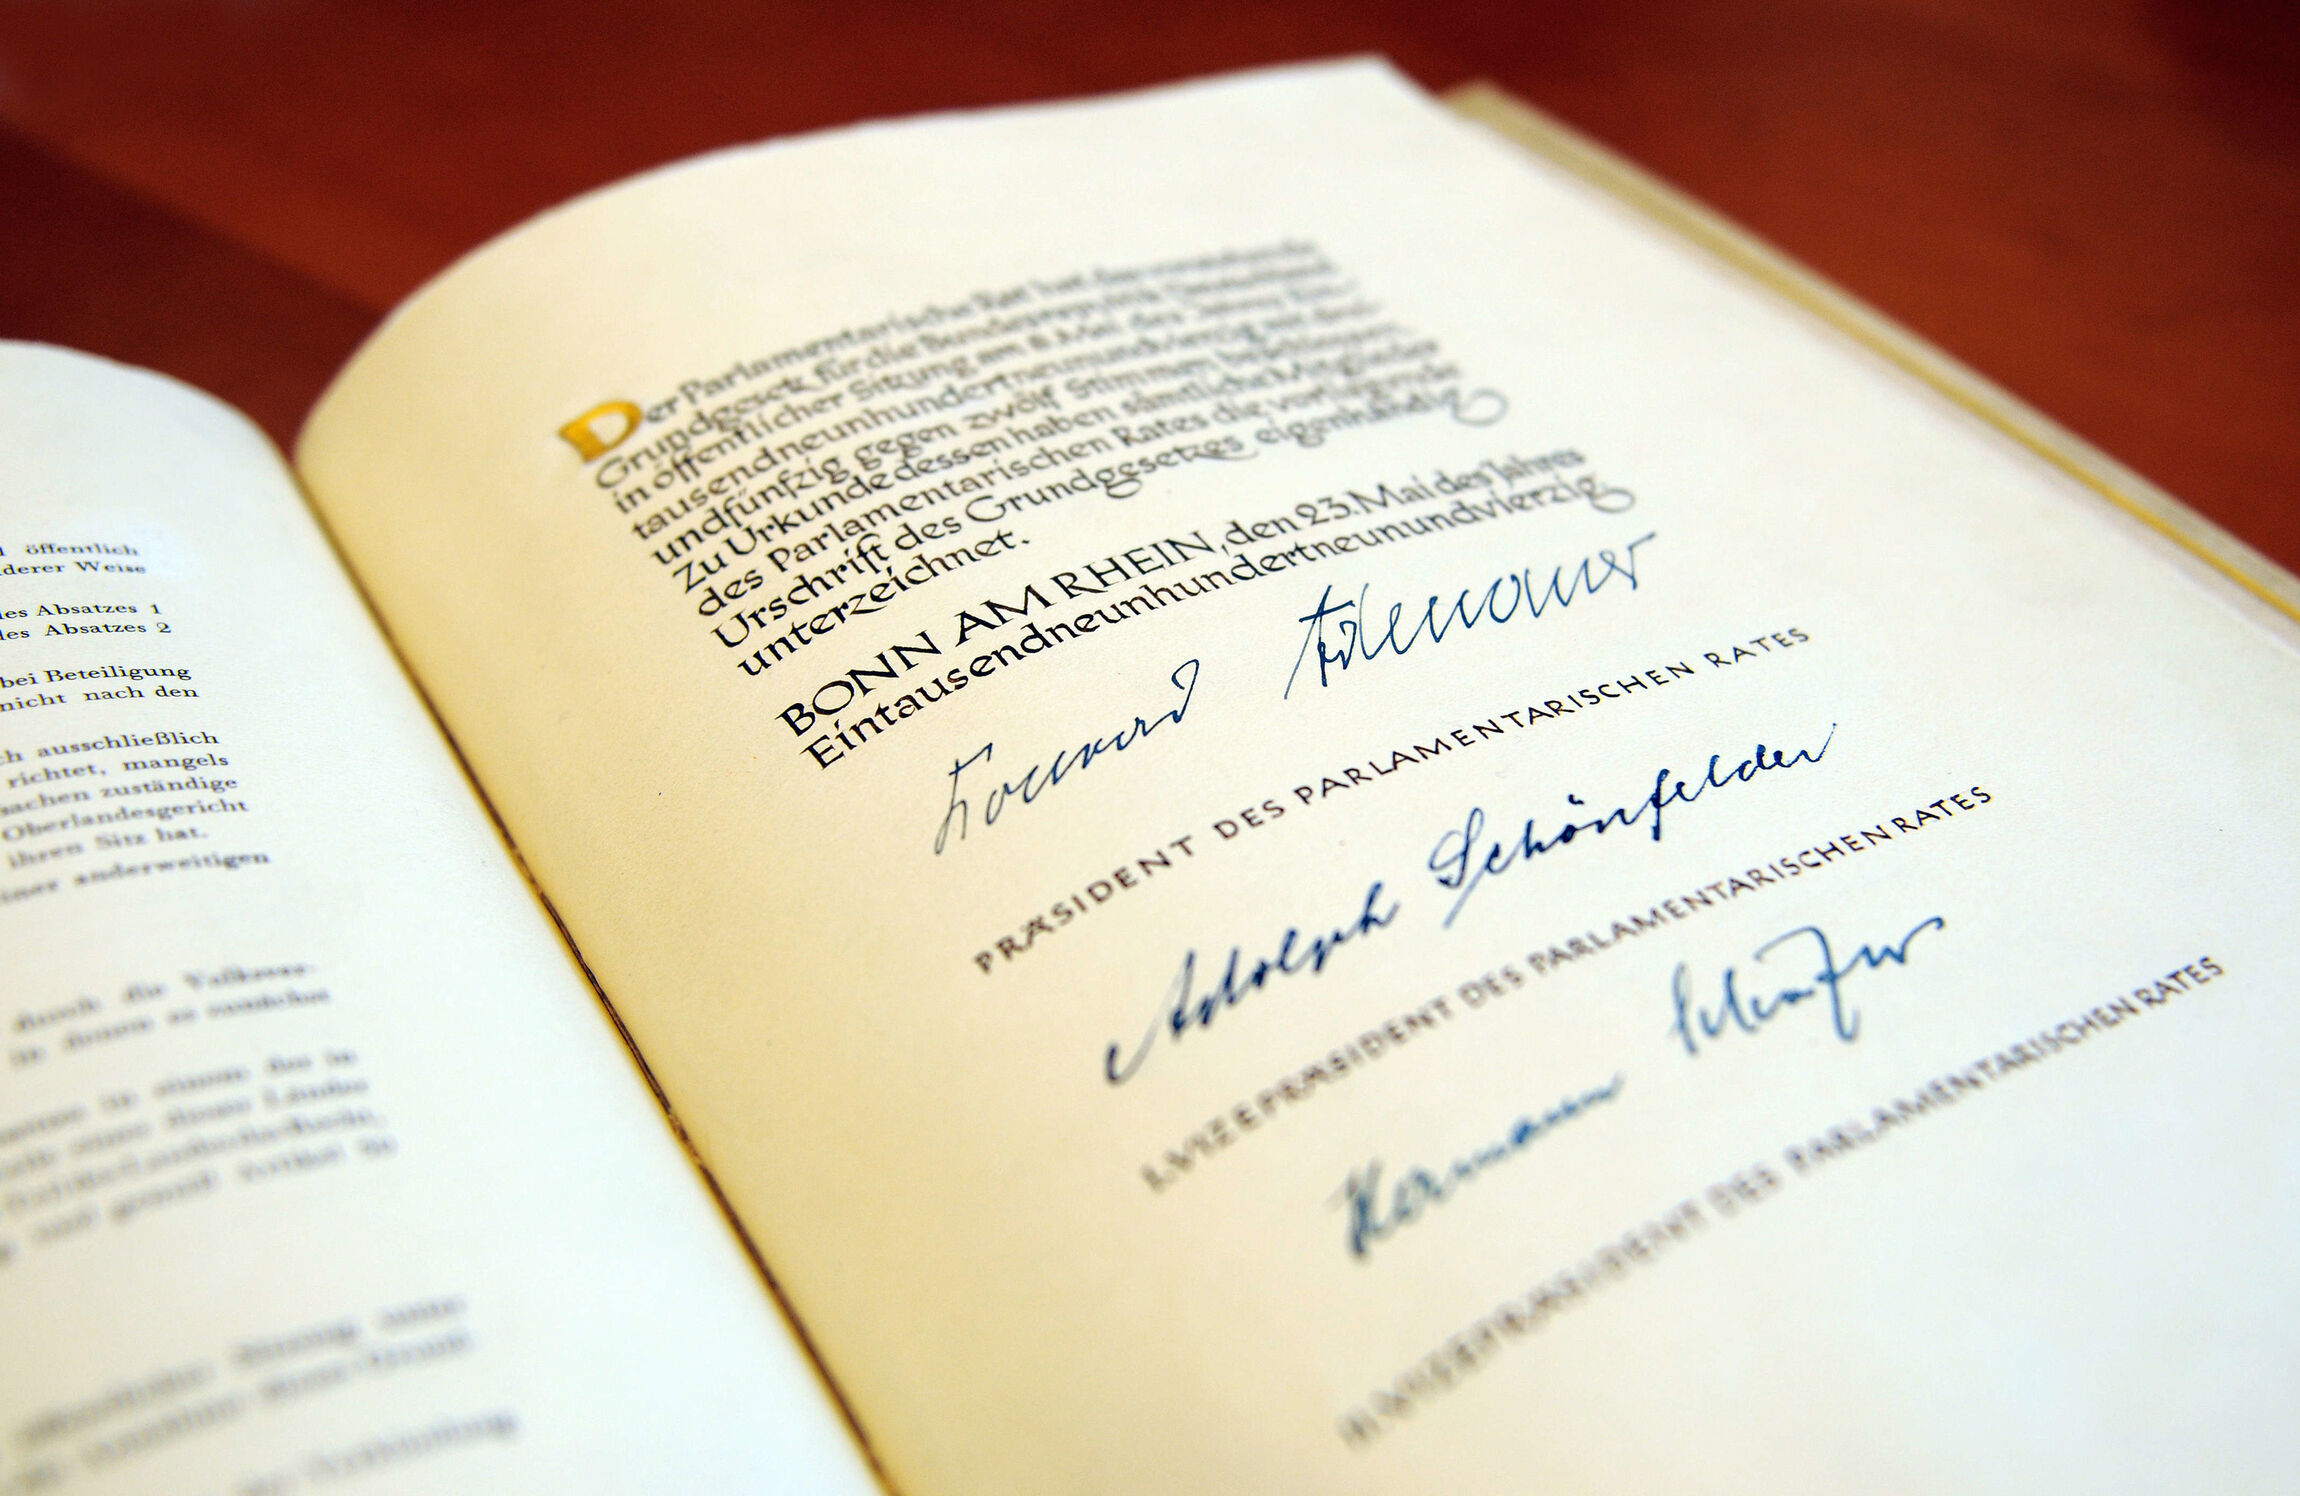 öffentlich
derer Weise
des Absatzes 1
des Absatzes 2
bei Beteiligung
nicht nach den
ausschließlich
richtet, mangels
sachen zuständige
Oberlandesgericht
ihren Sitz hat.
einer anderweitigen
durch die
in denen es zunächst
in einem der in
Länder
Artikel
Sitzung
Der Parlamentarische Rat hat das vorstehende
Grundgesetz für die Bundesrepublik Deutschland
in öffentlicher Sitzung am 8. Mai des Jahres Ein-
tausendneunhundertneunundvierzig mit drei-
undfünfzig gegen zwölf Stimmen beschlossen.
Zu Urkunde dessen haben sämtliche Mitglieder
des Parlamentarischen Rates die vorliegende
Urschrift des Grundgesetzes eigenhändig
unterzeichnet.
BONN AM RHEIN, den 23. Mai des Jahres
Eintausendneunhundertneunundvierzig
Konrad Adenauer
PRÄSIDENT DES PARLAMENTARISCHEN RATES
Adolph Schönfelder
I. VIZEPRÄSIDENT DES PARLAMENTARISCHEN RATES
Hermann Schäfer
II. VIZEPRÄSIDENT DES PARLAMENTARISCHEN RATES